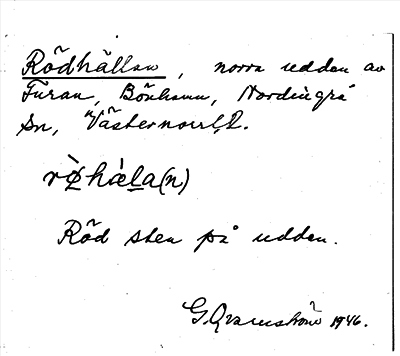 Rödhällan, norra udden av
Furan, Bönhamn, Nordingrå
sn, Västernorrl. l.
rø̀hæ̀la(n)
Röd sten på udden.
G. Qvarnström 1946.